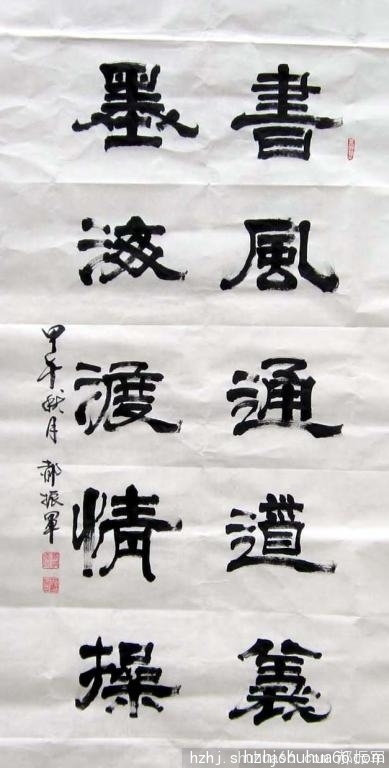 書風通道義
墨海渡情操
甲午秋月 郝振軍